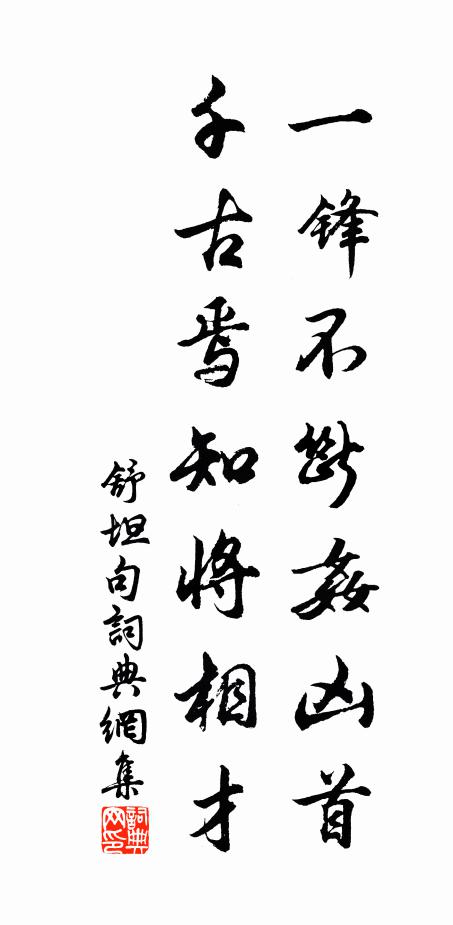 一鋒不斷姦凶首
千古焉知將相才
舒坦句詞典網集
詞典网印